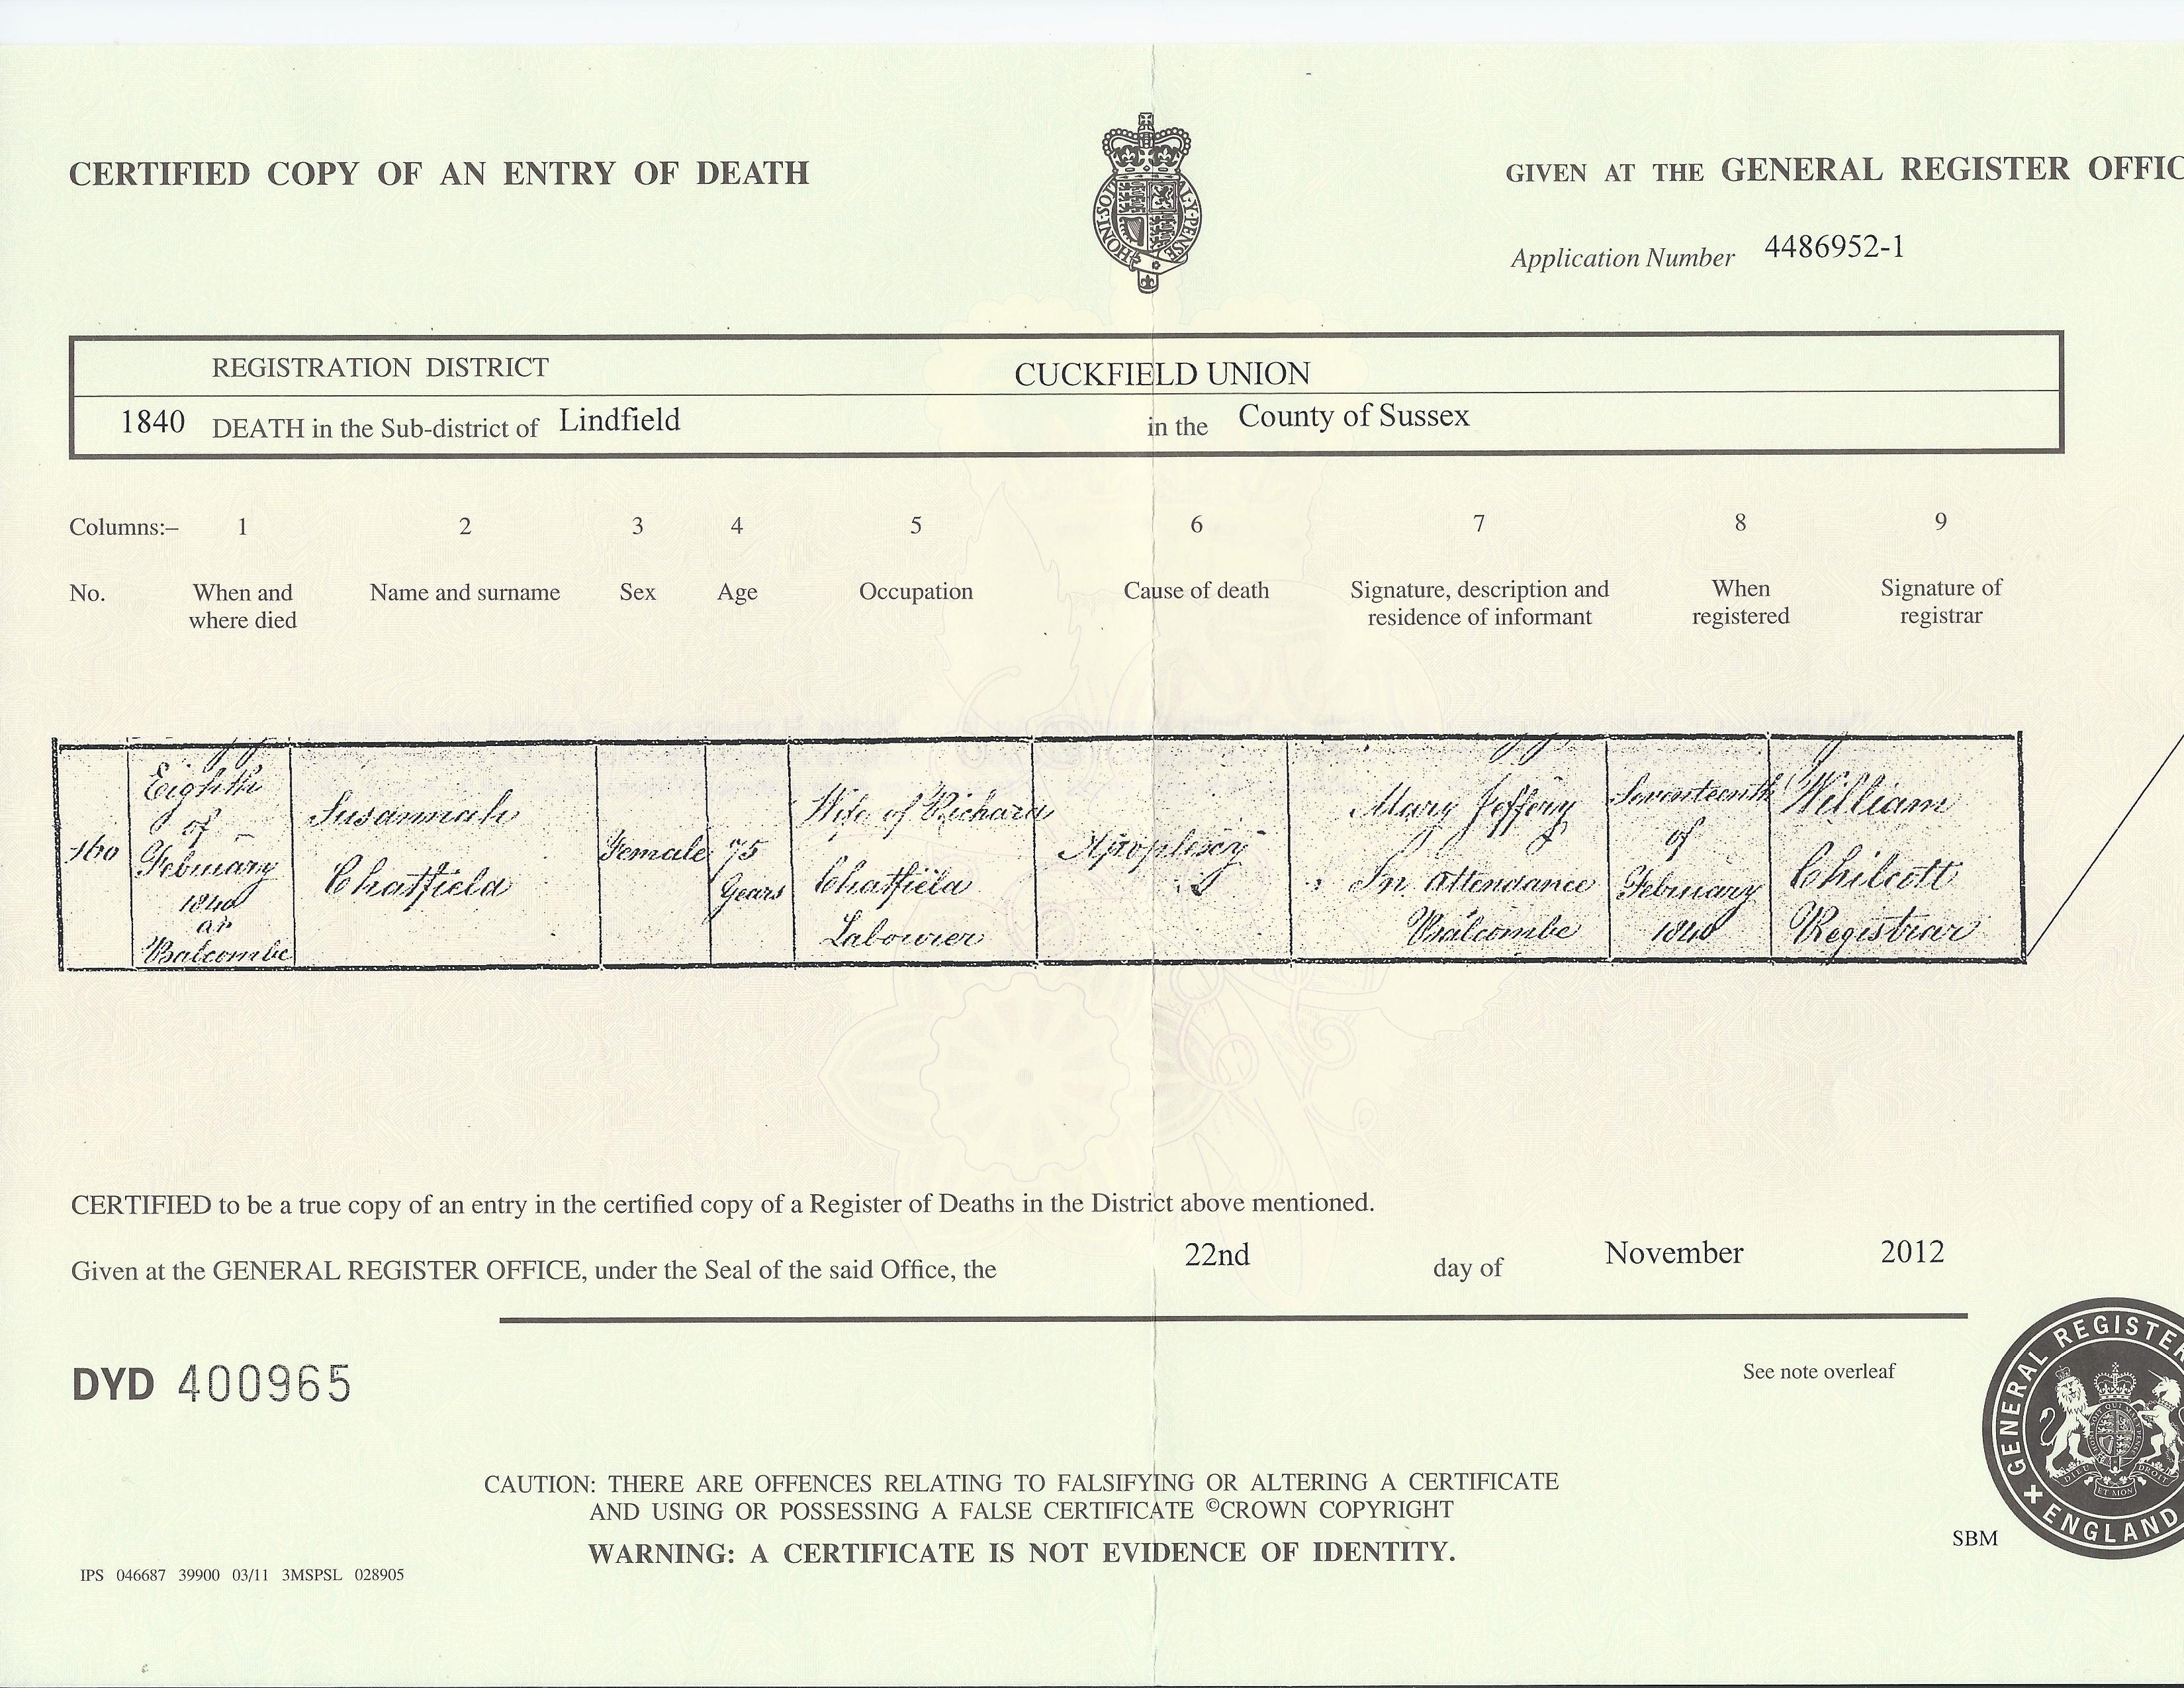 CERTIFIED COPY OF AN ENTRY OF DEATH
GIVEN AT THE GENERAL REGISTER OFFIC
HONI·SOI AL·Y·PENSE
Application Number 4486952-1
REGISTRATION DISTRICT CUCKFIELD UNION
1840 DEATH in the Sub-district of Lindfield in the County of Sussex
Columns:– 1 2 3 4 5 6 7 8 9
No. When and where died Name and surname Sex Age Occupation Cause of death Signature, description and residence of informant When registered Signature of registrar
160
Eighth
of
February
1840
at
Balcombe
Susannah
Chatfield
Female
75
Years
Wife of Richard
Chatfield
Labourer
Mary Jeffery
In attendance
Balcombe
Seventeenth
of
February
1840
William
Chilcott
Registrar
CERTIFIED to be a true copy of an entry in the certified copy of a Register of Deaths in the District above mentioned.
Given at the GENERAL REGISTER OFFICE, under the Seal of the said Office, the 22nd day of November 2012
DYD 400965
See note overleaf
GENERAL REGISTER
ENGLAND
DIEU DROIT
ET MON
CAUTION: THERE ARE OFFENCES RELATING TO FALSIFYING OR ALTERING A CERTIFICATE
AND USING OR POSSESSING A FALSE CERTIFICATE ©CROWN COPYRIGHT
WARNING: A CERTIFICATE IS NOT EVIDENCE OF IDENTITY.
SBM
IPS 046687 39900 03/11 3MSPSL 028905